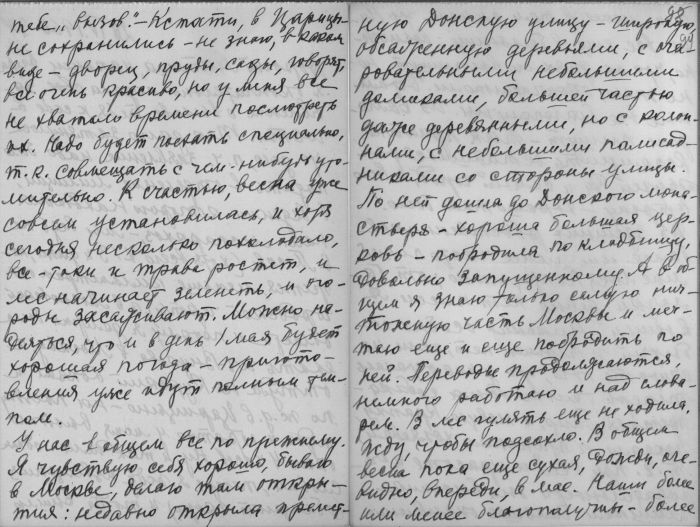 тебе „вызов".– Кстати, в Царицы-
не сохранились – не знаю, в каком
виде – дворец, пруды, сады, говорят,
все очень красиво, но у меня все
не хватало времени посмотреть
их. Надо будет поехать специально,
т.к. совмещать с чем-нибудь уто-
мительно. К счастью, весна уже
совсем установилась, и хотя
сегодня несколько похолодало,
все-таки и трава ростет, и
лес начинает зеленеть, и ого-
роды засаживают. Можно на-
деяться, что и в день 1 мая будет
хорошая погода – пригото-
вления уже идут полным тем-
пом.
У нас в общем все по прежнему.
Я чувствую себя хорошо, бываю
в Москве, делаю там откры-
тия: недавно открыла прелест-
ную Донскую улицу – широкую,
обсаженную деревьями, с оча-
ровательными небольшими
домиками, большей частью
даже деревянными, но с колон-
нами, с небольшими палисад-
никами со стороны улицы.
По ней дошла до Донского мона-
стыря – хороша большая цер-
ковь – побродила по кладбищу,
довольно запущенному. А в об-
щем я знаю только самую нич-
тожную часть Москвы и меч-
таю еще и еще побродить по
ней. Переводы продолжаются,
немного работаю и над слова-
рем. В лес гулять еще не ходила.
Жду, чтобы подсохло. В общем
весна пока еще сухая, дожди, оче-
видно, впереди, в мае. Наши более
или менее благополучны – более